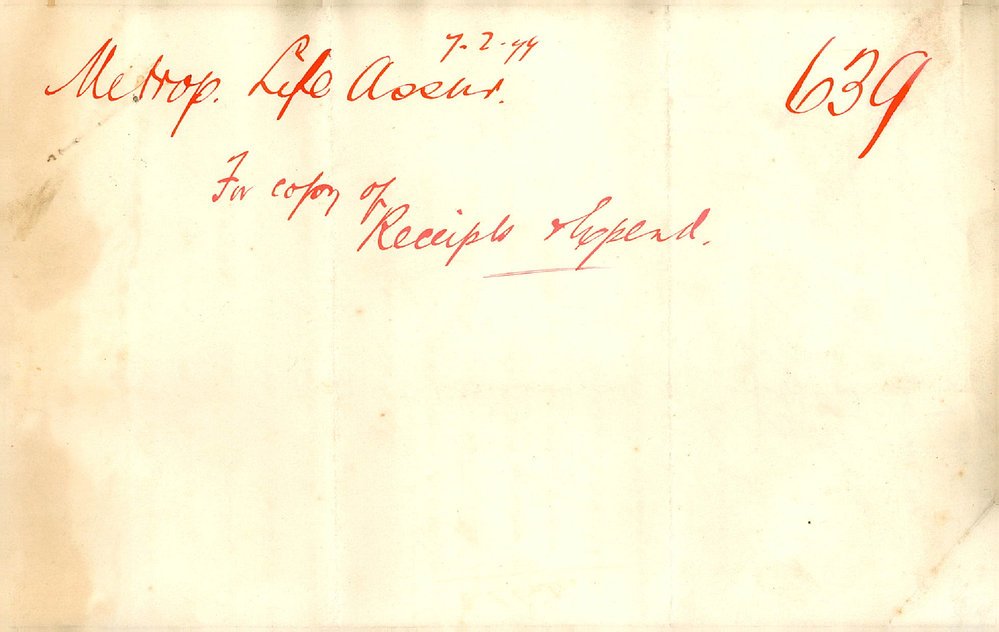 7-2-99
Metrop. Life Assur. 639
For copy of
Receipts & Expend.